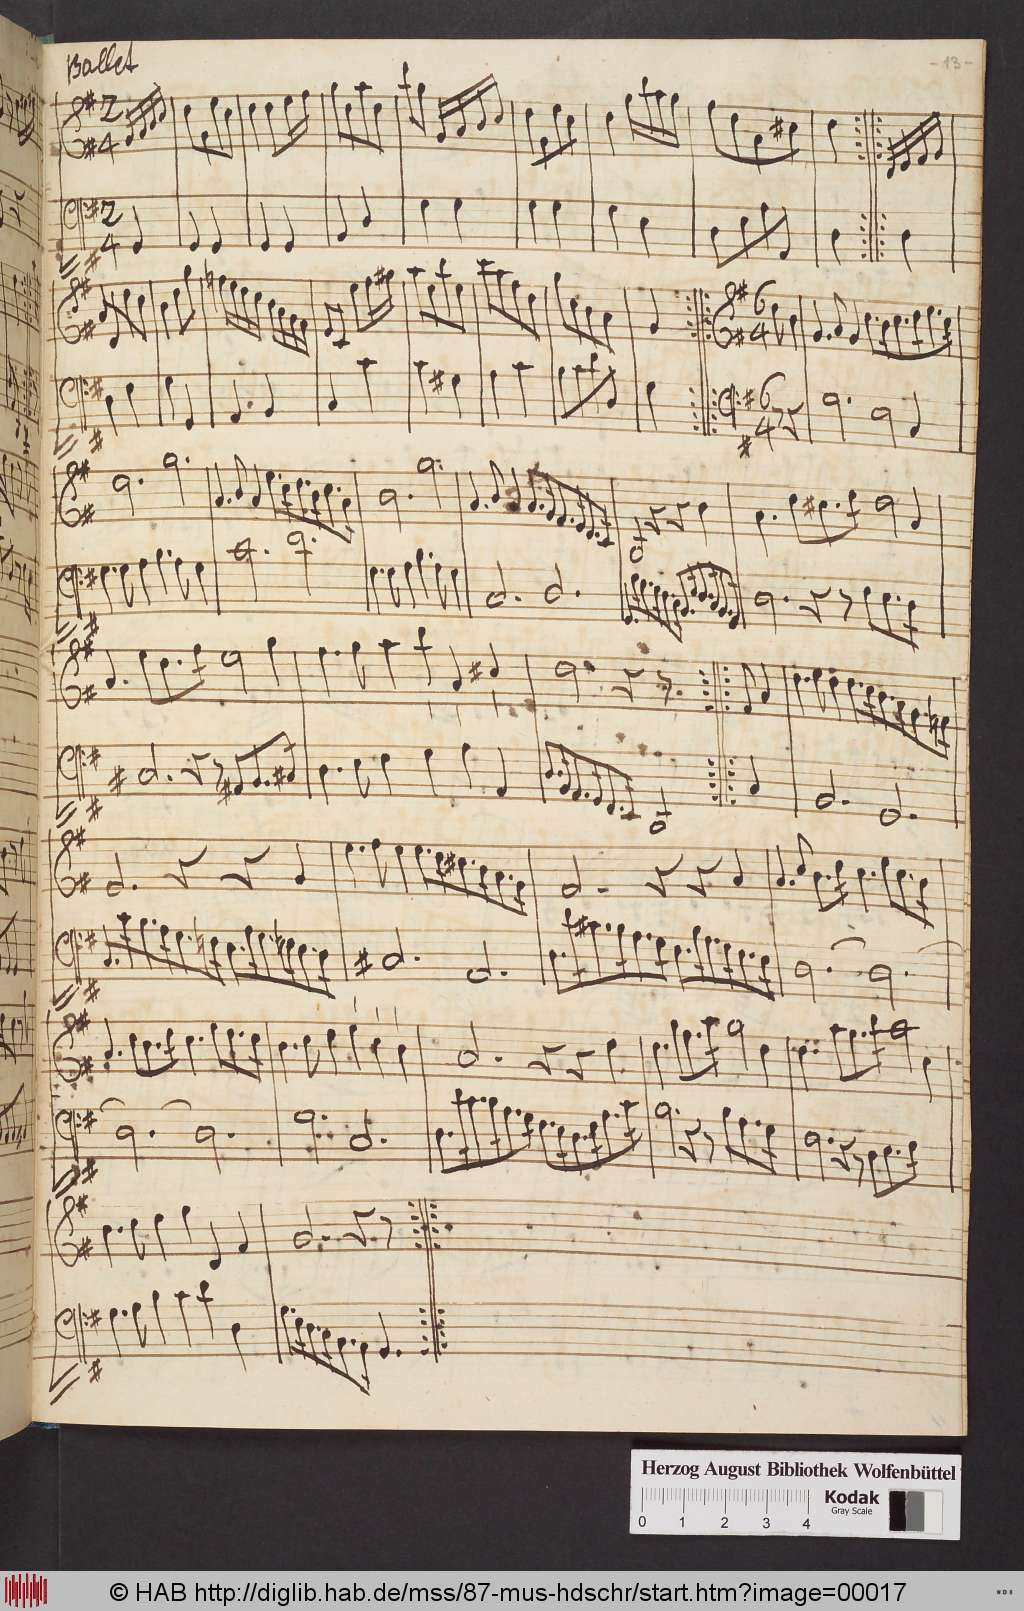 Ballet
- 13 -
2
4
2
4
6
4
6
4
Herzog August Bibliothek Wolfenbüttel
Kodak
Gray Scale
0 1 2 3 4
© HAB http://diglib.hab.de/mss/87-mus-hdschr/start.htm?image=00017